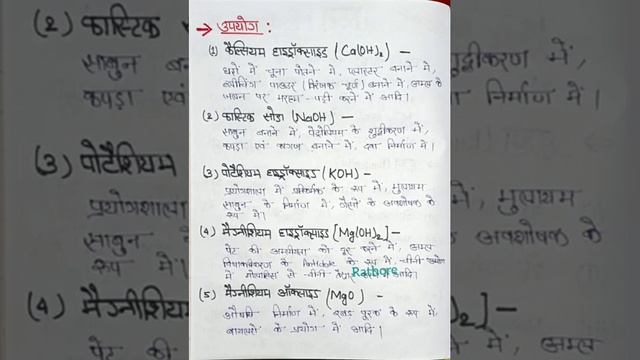 उपयोग :
(1) कैल्सियम हाइड्रॉक्साइड (Ca(OH)₂) —
घरों में चूना पोतने में, प्लास्टर बनाने में,
ब्लीचिंग पाउडर (विरंजक चूर्ण) बनाने में, अम्ल के
जलन पर मरहम-पट्टी करने में आदि।
(2) कास्टिक सोडा (NaOH) —
साबुन बनाने में, पेट्रोलियम के शुद्धीकरण में,
कपड़ा एवं कागज बनाने में, दवा निर्माण में।
(3) पोटैशियम हाइड्रॉक्साइड (KOH) —
प्रयोगशाला में के रूप में, मुलायम
साबुन के निर्माण में, गैसों के अवशोषक के
रूप में।
(4) मैग्नीशियम हाइड्रॉक्साइड [Mg(OH)₂] —
पेट की अम्लीयता को दूर करने में, अम्ल
के Antidote के रूप में, चीनी उद्योग
में से चीनी तैयार करने में आदि।
Rathore
(5) मैग्नीशियम ऑक्साइड (MgO) —
औषधि निर्माण में, रबड़ पूरक के रूप में,
बायलरों के प्रयोग में आदि।
(2) कास्टिक
साबुन बना
कपड़ा एवं
(3) पोटैशियम
प्रयोगशाला
साबुन के
रूप में।
(4) मैग्नीशियम
पेट की
शुद्धीकरण में,
निर्माण में।
में, मुलायम
अवशोषक के
] —
अम्ल